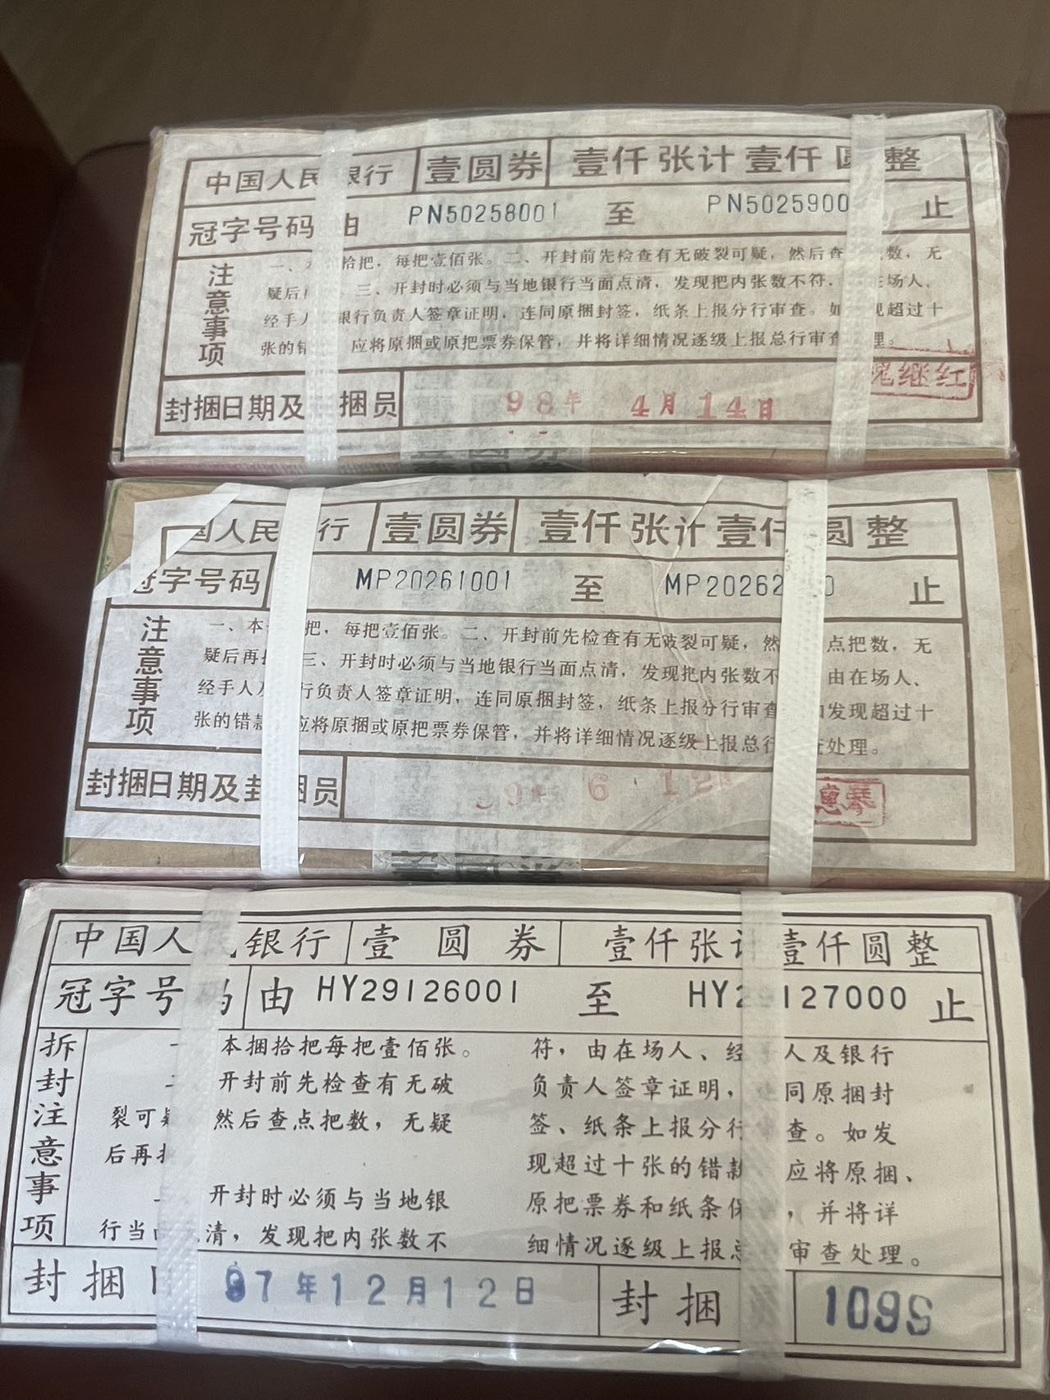 中国人民银行 壹圆券 壹仟张计壹仟圆整
冠字号码 由 PN50258001 至 PN5025900 止
注意事项
一、本 拾把，每把壹佰张。二、开封前先检查有无破裂可疑，然后查 数，无
疑后 三、开封时必须与当地银行当面点清，发现把内张数不符， 在场人、
经手人 银行负责人签章证明，连同原捆封签，纸条上报分行审查。如 现超过十
张的错 应将原捆或原把票券保管，并将详细情况逐级上报总行审查 理。
封捆日期及 捆员 98年 4月14日 继红
国人民 行 壹圆券 壹仟张计壹仟圆整
冠字号码 MP20261001 至 MP20262 0 止
注意事项
一、本 把，每把壹佰张。二、开封前先检查有无破裂可疑，然 点把数，无
疑后再 三、开封时必须与当地银行当面点清，发现把内张数不 由在场人、
经手人及 行负责人签章证明，连同原捆封签，纸条上报分行审查 如发现超过十
张的错款 应将原捆或原把票券保管，并将详细情况逐级上报总行 查处理。
封捆日期及封捆员 6 12
中国人民银行 壹圆券 壹仟张计壹仟圆整
冠字号码 由 HY29126001 至 HY29127000 止
拆封注意事项
一 本捆拾把每把壹佰张。
二 开封前先检查有无破
裂可疑 然后查点把数，无疑
后再
开封时必须与当地银
行当面 清，发现把内张数不
符，由在场人、经手人及银行
负责人签章证明，连同原捆封
签、纸条上报分行审查。如发
现超过十张的错款 应将原捆、
原把票券和纸条保管，并将详
细情况逐级上报总 审查处理。
封捆日 97年12月12日 封捆员 1099